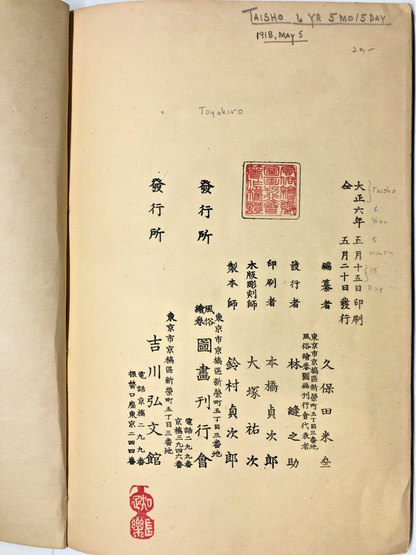 TAISHO 6 YR 5 MO 15 DAY
1918, MAY 5
20,-
Toyohiro
大正六年五月十五日印刷
仝 五月二十日發行
Taisho
6
Year
5
Month
15
Day
編纂者 久保田米
東京市京橋區新榮町五丁目三番地
風俗繪卷圖畫刊行會代表者
發行者 林縫之助
印刷者 本橋貞次郎
木版彫刻師 大塚祐次
製本師 鈴村貞次郎
東京市京橋區新榮町五丁目三番地
發行所 風俗繪卷圖畫刊行會
電話京橋
東京市京橋區新榮町五丁目三番地
發行所 吉川弘文館
電話京橋
振替口座東京二四四番